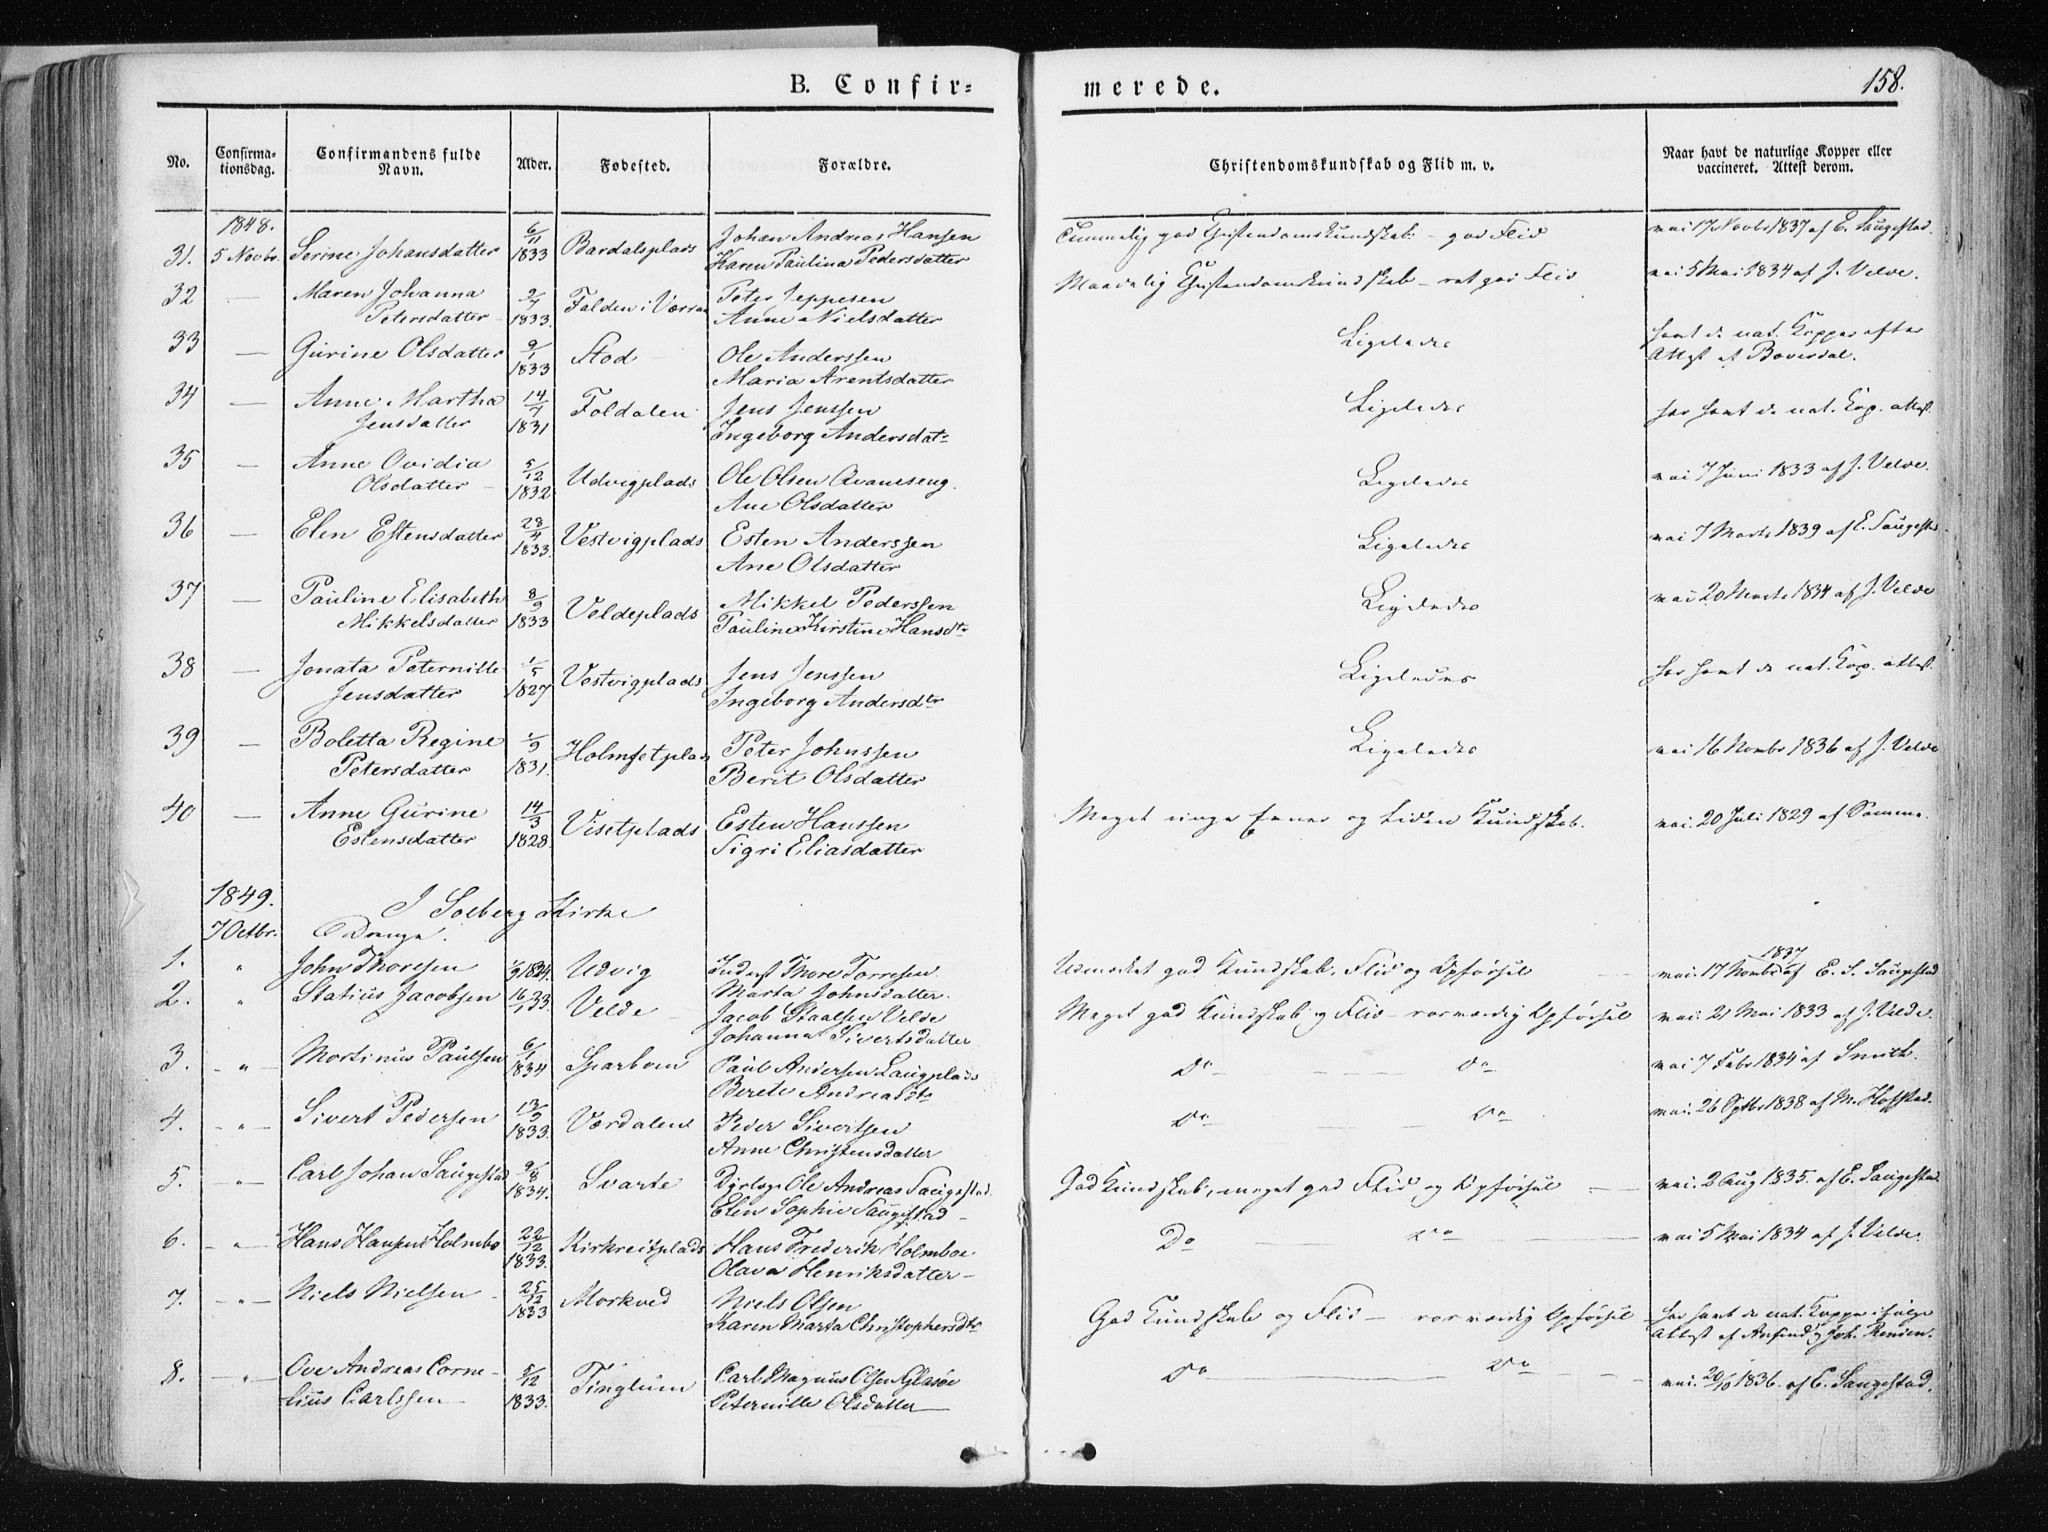 B. Confir-
merede.
158.
No.
Confirma-
tionsdag.
Confirmandens fulde
Navn.
Alder.
Fødested.
Forældre.
Christendomskundskab og Flid m. v.
Naar havt de naturlige Kopper eller
vaccineret. Attest derom.
1848.
31. 5 Novbr. Serine Johansdatter 6/11 1833 Bardalsplads Johan Andreas Hansen
Karen Paulina Pedersdatter
god Christendomskundskab - god Flid
vac 17 Novbr 1837 af E. Saugestad.
32 — Maren Johanna
Petersdatter 1833. Folden i Peter Jeppesen
Anne Nielsdatter
Maadelig Christendomskundskab - ret god Flid
vac 5 Mai 1834 af J. Velde.
33 — Gurine Olsdatter 9/1 1833 Stod Ole Anderssen
Maria Arentsdatter
Ligeledes
havt de nat. Kopper efter
Attest af
34 — Anne Martha
Jensdatter 14/7 1831 Foldalen Jens Jenssen
Ingeborg Andersdat-
Ligeledes
har havt de nat. Kop. attest.
35 — Anne Ovidia
Olsdatter 5/12 1832 Udvigplads Ole Olsen
Ane Olsdatter
Ligeledes
vac 7 Juni 1833 af J. Velde.
36 — Elen Estensdatter 28/4 1833. Vestvigplads Esten Anderssen
Ane Olsdatter
Ligeledes
vac 7 Marts 1839 af E. Saugestad.
37 — Pauline Elisabeth
Mikkelsdatter 8/9 1833 Veldeplads Mikkel Pederssen
Pauline Kirstine Hansdtr
Ligeledes
vac 20 Marts 1834 af J. Velde
38 — Jonata Peternille
Jensdatter 1/5 1827 Vestvigplads Jens Jenssen
Ingeborg Andersdtr
Ligeledes
har havt de nat. Kop. attest.
39 — Boletta Regine
Petersdatter 1/9 1831. Peter Johnssen
Berit Olsdatter
Ligeledes
vac 16 Novbr 1836 af J. Velde
40 — Anne Gurine
Estensdatter 14/3 1828. Visetplads Esten Hanssen
Sigri Eliasdatter
Meget ringe Evner og liden Kundskab.
vac. 20 Juli 1829 af
1849. I Solberg Kirke
7 Octbr. Drenge.
1. " John Thoresen Udvig Thore Torresen
Marta Johnsdatter.
Udmærket god Kundskab, Flid og Opførsel
vac. 17 Novbr 1837 af E. S. Saugestad
2. " Statius Jacobsen 16/1 33. Velde Jacob Staalsen Velde
Johanna Sivertsdatter
Meget god Kundskab og Flid - roesværdig Opførsel
vac. 21 Mai 1833 af J. Velde.
3. " Mortinus Paulsen 6/1 1834 Sparboen Paul Andersen Laugplads
Berete Andreasdtr
Do — Do
vac 7 Febr 1834 af Smith.
4. " Sivert Pedersen 13/9 1833. Værdalen Peder Sivertsen
Anne Christensdatter
Do — Do
vac. 26 Sptbr 1838 af M. Hofstad.
5. " Carl Johan Saugestad 1834. Svarte Ole Andreas Saugestad
Elen Sophie Saugestad
God Kundskab, meget god Flid og Opførsel
vac. 2 Aug 1835. af E. Saugestad
6. " Hans Hansen Holmbo 22/12 1833. Kirkreitplads Hans Frederik Holmboe
Olava Henriksdatter
Do — Do
vac 5 Mai 1834 af J. Velde.
7. " Niels Nielsen 25/12 1833 Morkved Niels Olsen
Karen Marta Christophersdtr
God Kundskab og Flid — roesværdig Opførsel
har havt de nat. Kopper ifølge
Attest af
8. " Ove Andreas Corne-
lius Carlssen 5/12 1833. Tinglum Carl Magnus Olsen
Peternille Olsdatter
Do — Do
vac. 20/10 1836. af E. Saugestad.